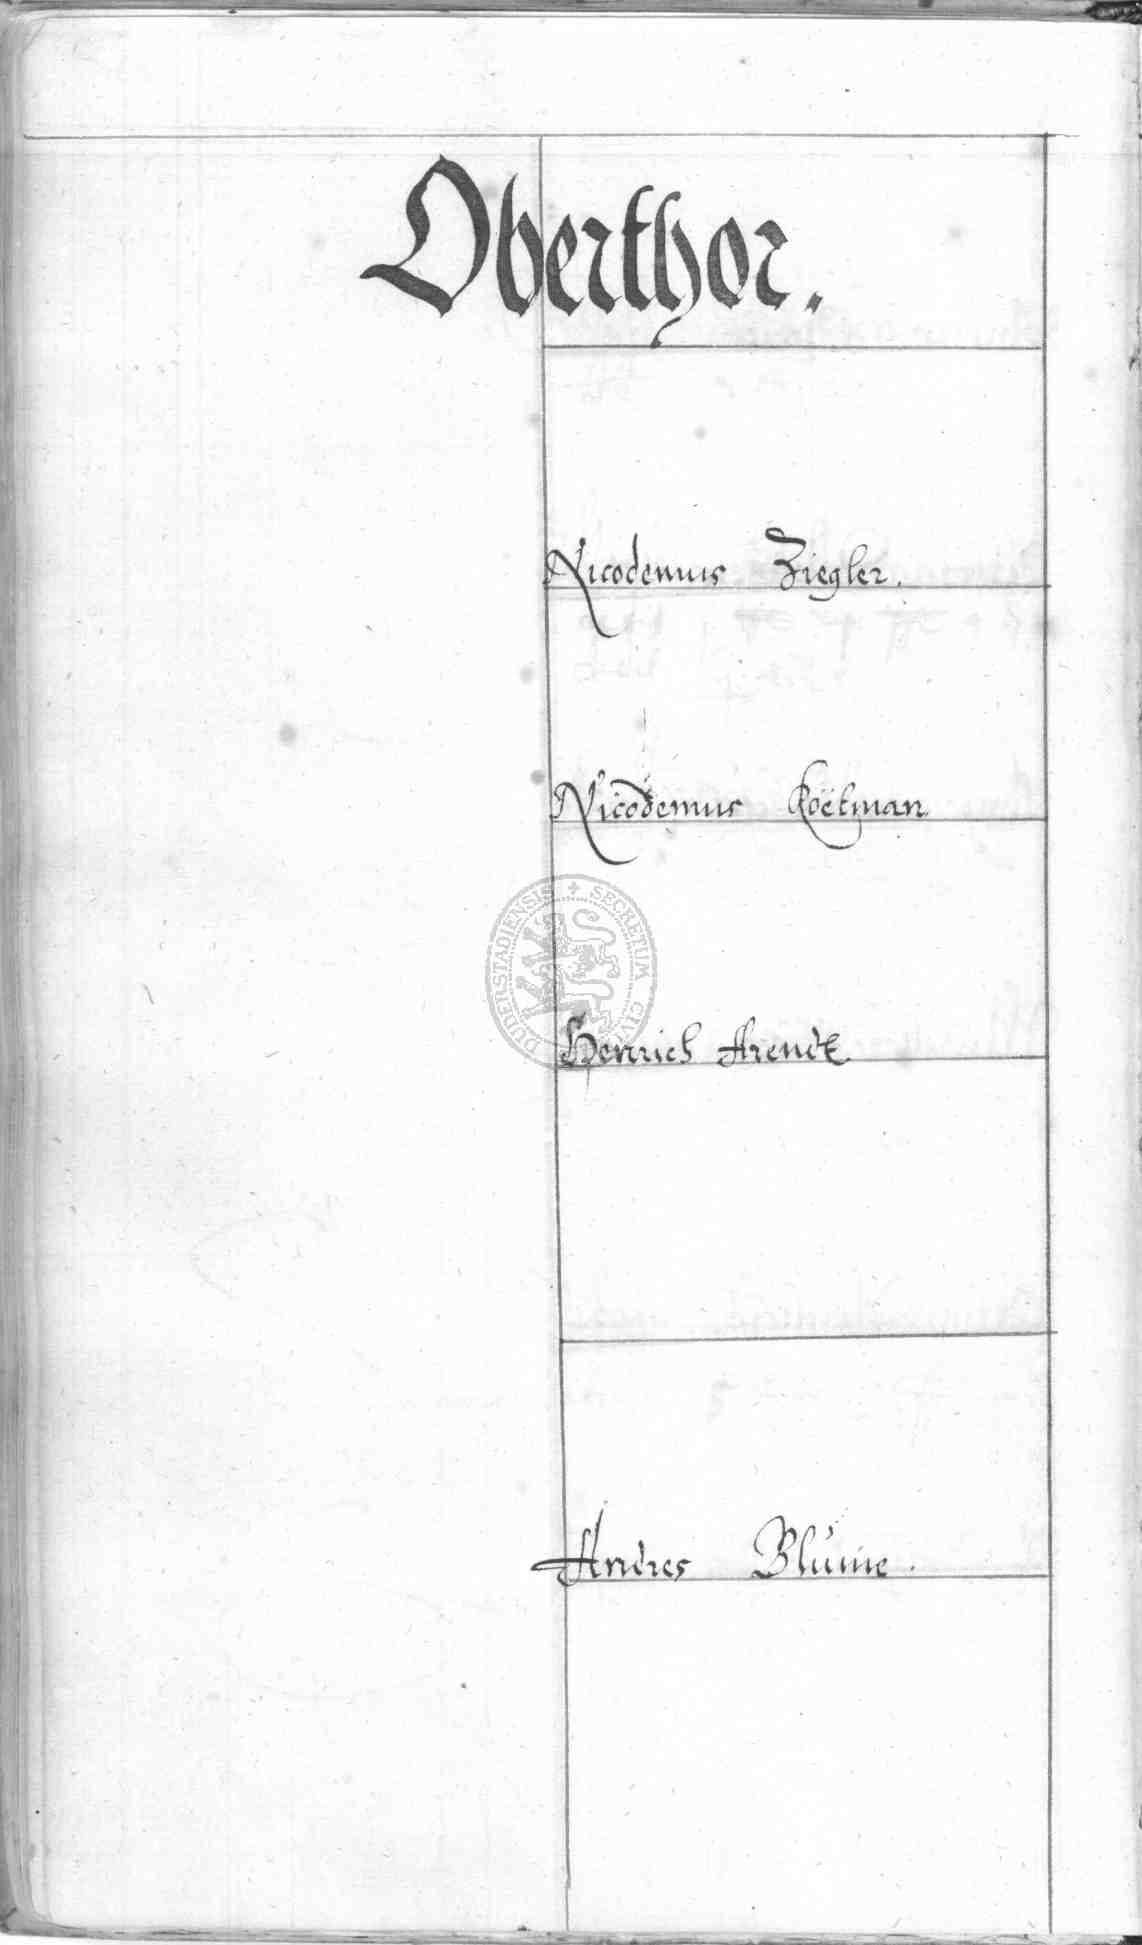 Oberthor.
Nicodemus Ziegler.
Nicodemus
DUDERSTADIENSIS + SECRETUM
Henrich Arendt
Andres Blume.